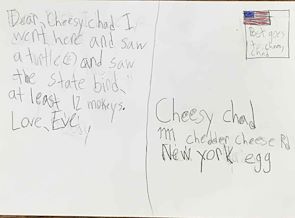 Dear, Cheesy chad I
went here and saw
a turtle(s) and saw
the state bird,
at least 12 mokeys.
Love, Eve
goes
to cheesy
chad
Cheesy chad
1111 chedder cheese Rd
New york egg